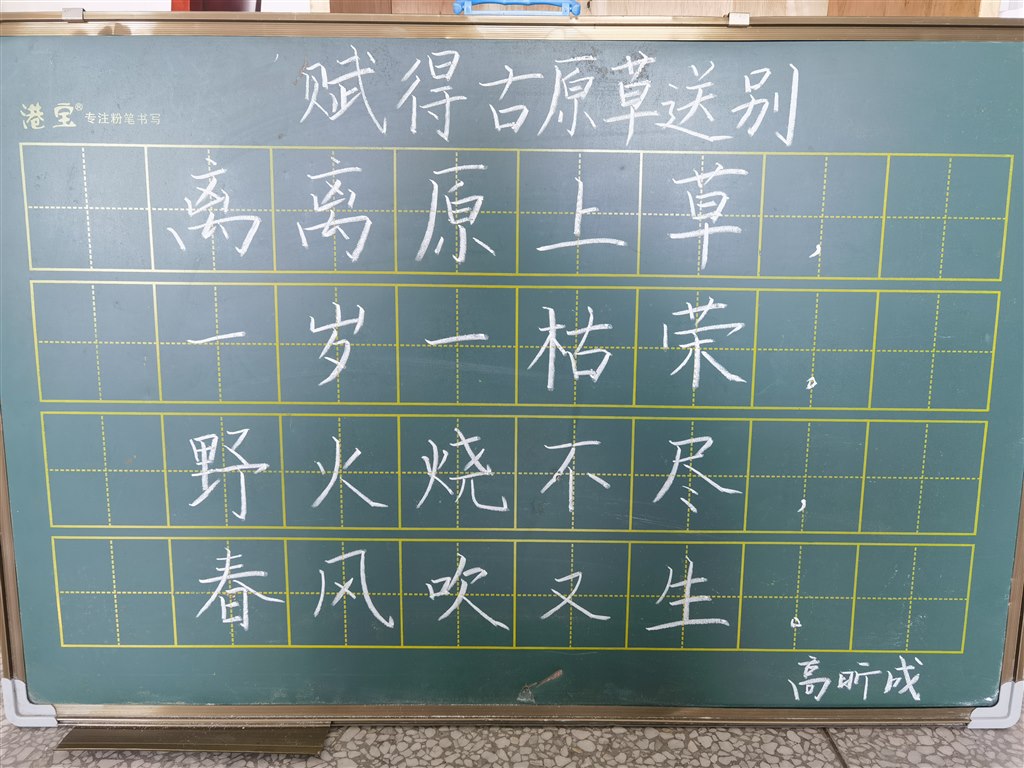 赋得古原草送别
港宝® 专注粉笔书写
离离原上草,
一岁一枯荣。
野火烧不尽,
春风吹又生。
高昕成